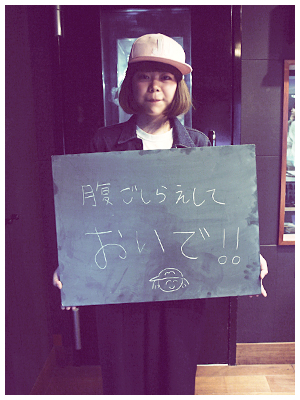 腹ごしらえして
おいで!!